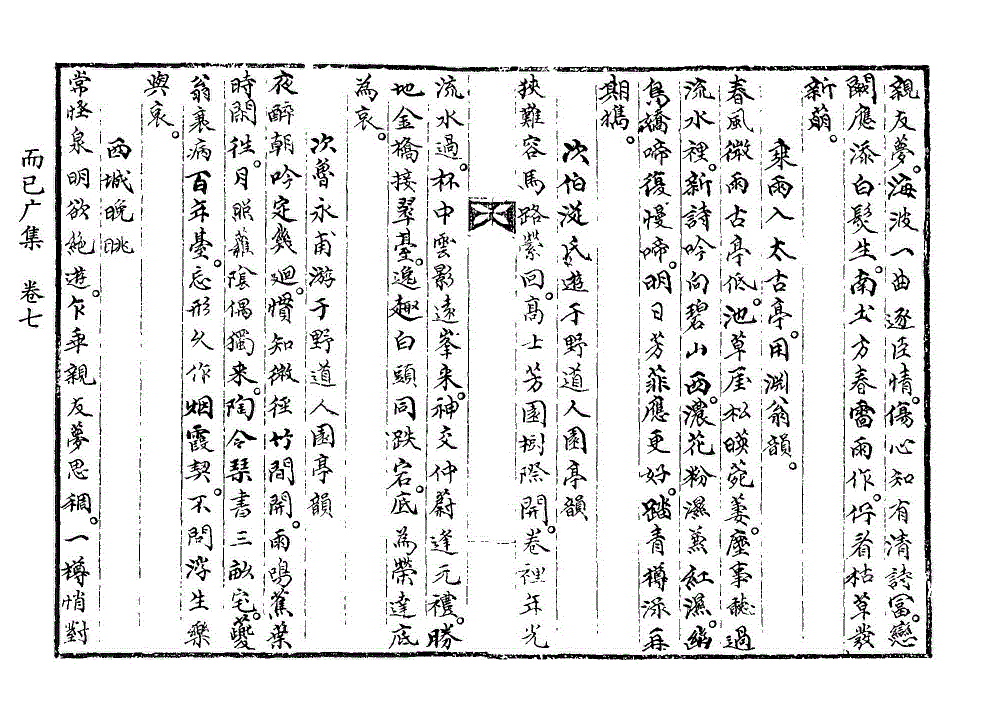 親友夢海波一曲逐臣情傷心知有清詩寫戀
闕應添白髮生南土方春雷雨作佇看枯草發
新萌
乘雨入太古亭用淵翁韻
春風微雨古亭低池草屋松暎菀萋塵事聽過
流水裡新詩吟向碧山西濃花粉濕蒸紅濕幽
鳥嬌啼復慢啼明日芳菲應更好踏青樽添再
期携
次伯從氏遊于野道人園亭韻
挾難容馬路縈回高士芳園樹際開卷裡年光
流水過杯中雲影遠峯來神交仲蔚逢元禮勝
地金樽接翠臺逸趣白頭同跌宕底爲榮達底
為哀
次魯永甫游于野道人園亭韻
夜醉朝吟定幾廻慣知微徑竹間開雨鳴蕉葉
時閑徃月照蘿陰偶獨来陶令琹書三畝宅夔
翁衰病百年臺忘形久作烟霞契不問浮生樂
與哀
西城晚眺
常怪泉明欲絶遊乍乖親友夢思稠一樽悄對
而已广集 卷七